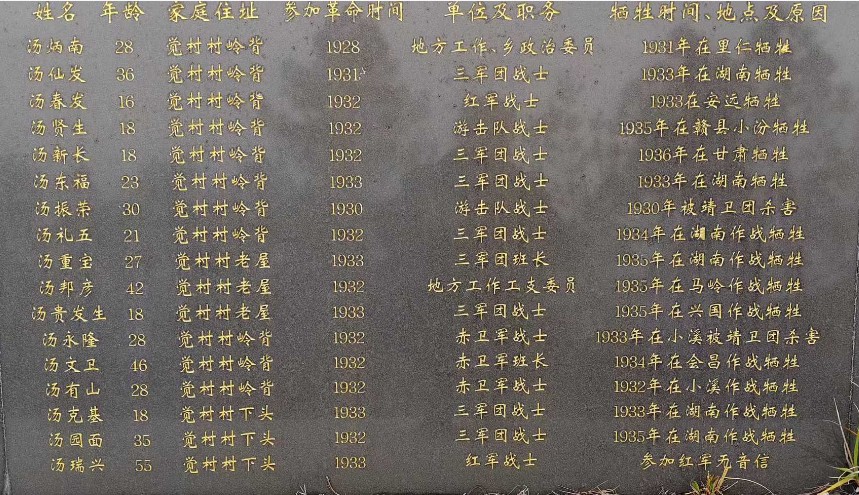 姓名 年龄 家庭住址 参加革命时间 单位及职务 牺牲时间、地点及原因
汤炳南 28 觉村村岭背 1928 地方工作、乡政治委员 1931年在里仁牺牲
汤仙发 36 觉村村岭背 1931 三军团战士 1933年在湖南牺牲
汤春发 16 觉村村岭背 1932 红军战士 1933在安远牺牲
汤贤生 18 觉村村岭背 1932 游击队战士 1935年在赣县小汾牺牲
汤新长 18 觉村村岭背 1932 三军团战士 1936年在甘肃牺牲
汤东福 23 觉村村岭背 1933 三军团战士 1933年在湖南牺牲
汤振荣 30 觉村村岭背 1930 游击队战士 1930年被靖卫团杀害
汤礼五 21 觉村村岭背 1932 三军团战士 1934年在湖南作战牺牲
汤重宝 27 觉村村老屋 1933 三军团班长 1935年在湖南作战牺牲
汤邦彦 42 觉村村老屋 1932 地方工作工支委员 1935年在马岭作战牺牲
汤贵发生 18 觉村村老屋 1933 三军团战士 1935年在兴国作战牺牲
汤永隆 28 觉村村岭背 1932 赤卫军战士 1933年在小溪被靖卫团杀害
汤文卫 46 觉村村岭背 1932 赤卫军班长 1934年在会昌作战牺牲
汤有山 28 觉村村岭背 1932 赤卫军战士 1932年在小溪作战牺牲
汤克基 18 觉村村下头 1933 三军团战士 1933年在湖南作战牺牲
汤园面 35 觉村村下头 1932 三军团战士 1935年在湖南作战牺牲
汤瑞兴 55 觉村村下头 1933 红军战士 参加红军无音信